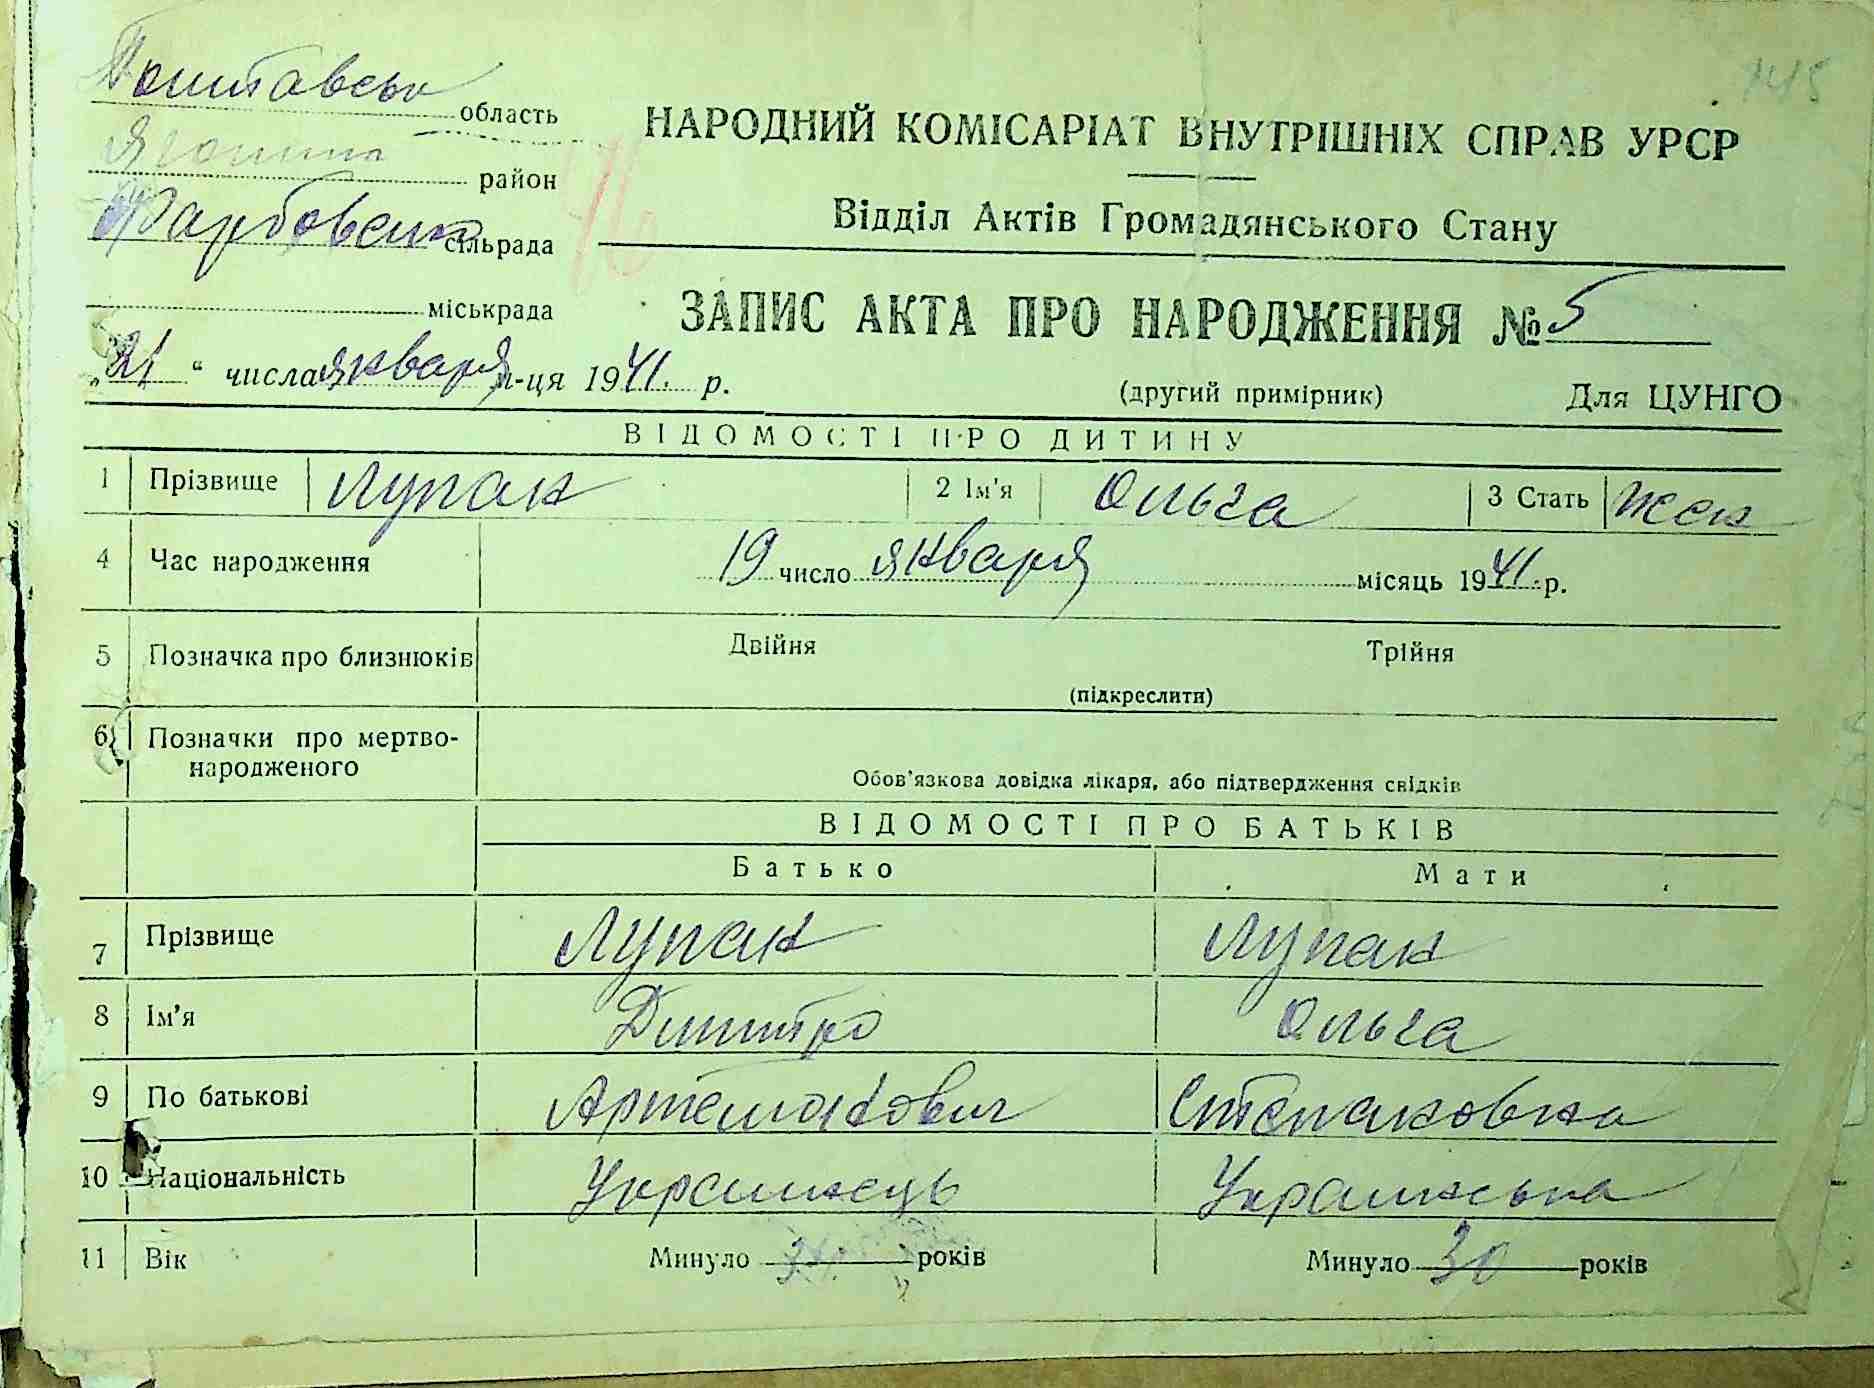 Полтавська область
район
Фарбовська сільрада
міськрада
НАРОДНИЙ КОМІСАРІАТ ВНУТРІШНІХ СПРАВ УРСР
Відділ Актів Громадянського Стану
ЗАПИС АКТА ПРО НАРОДЖЕННЯ № 5
„21" числа января м-ця 1941 р.
(другий примірник) Для ЦУНГО
ВІДОМОСТІ ПРО ДИТИНУ
1 Прізвище Лупак 2 Ім'я Ольга 3 Стать жен
4 Час народження 19 число января місяць 1941 р.
5 Позначка про близнюків Двійня Трійня
(підкреслити)
6 Позначки про мертво-
народженого
Обов'язкова довідка лікаря, або підтвердження свідків
ВІДОМОСТІ ПРО БАТЬКІВ
Батько Мати
7 Прізвище Лупак Лупак
8 Ім'я Дмитро Ольга
9 По батькові Артемонович Степановна
10 Національність Українець Українська
11 Вік Минуло років Минуло 30 років